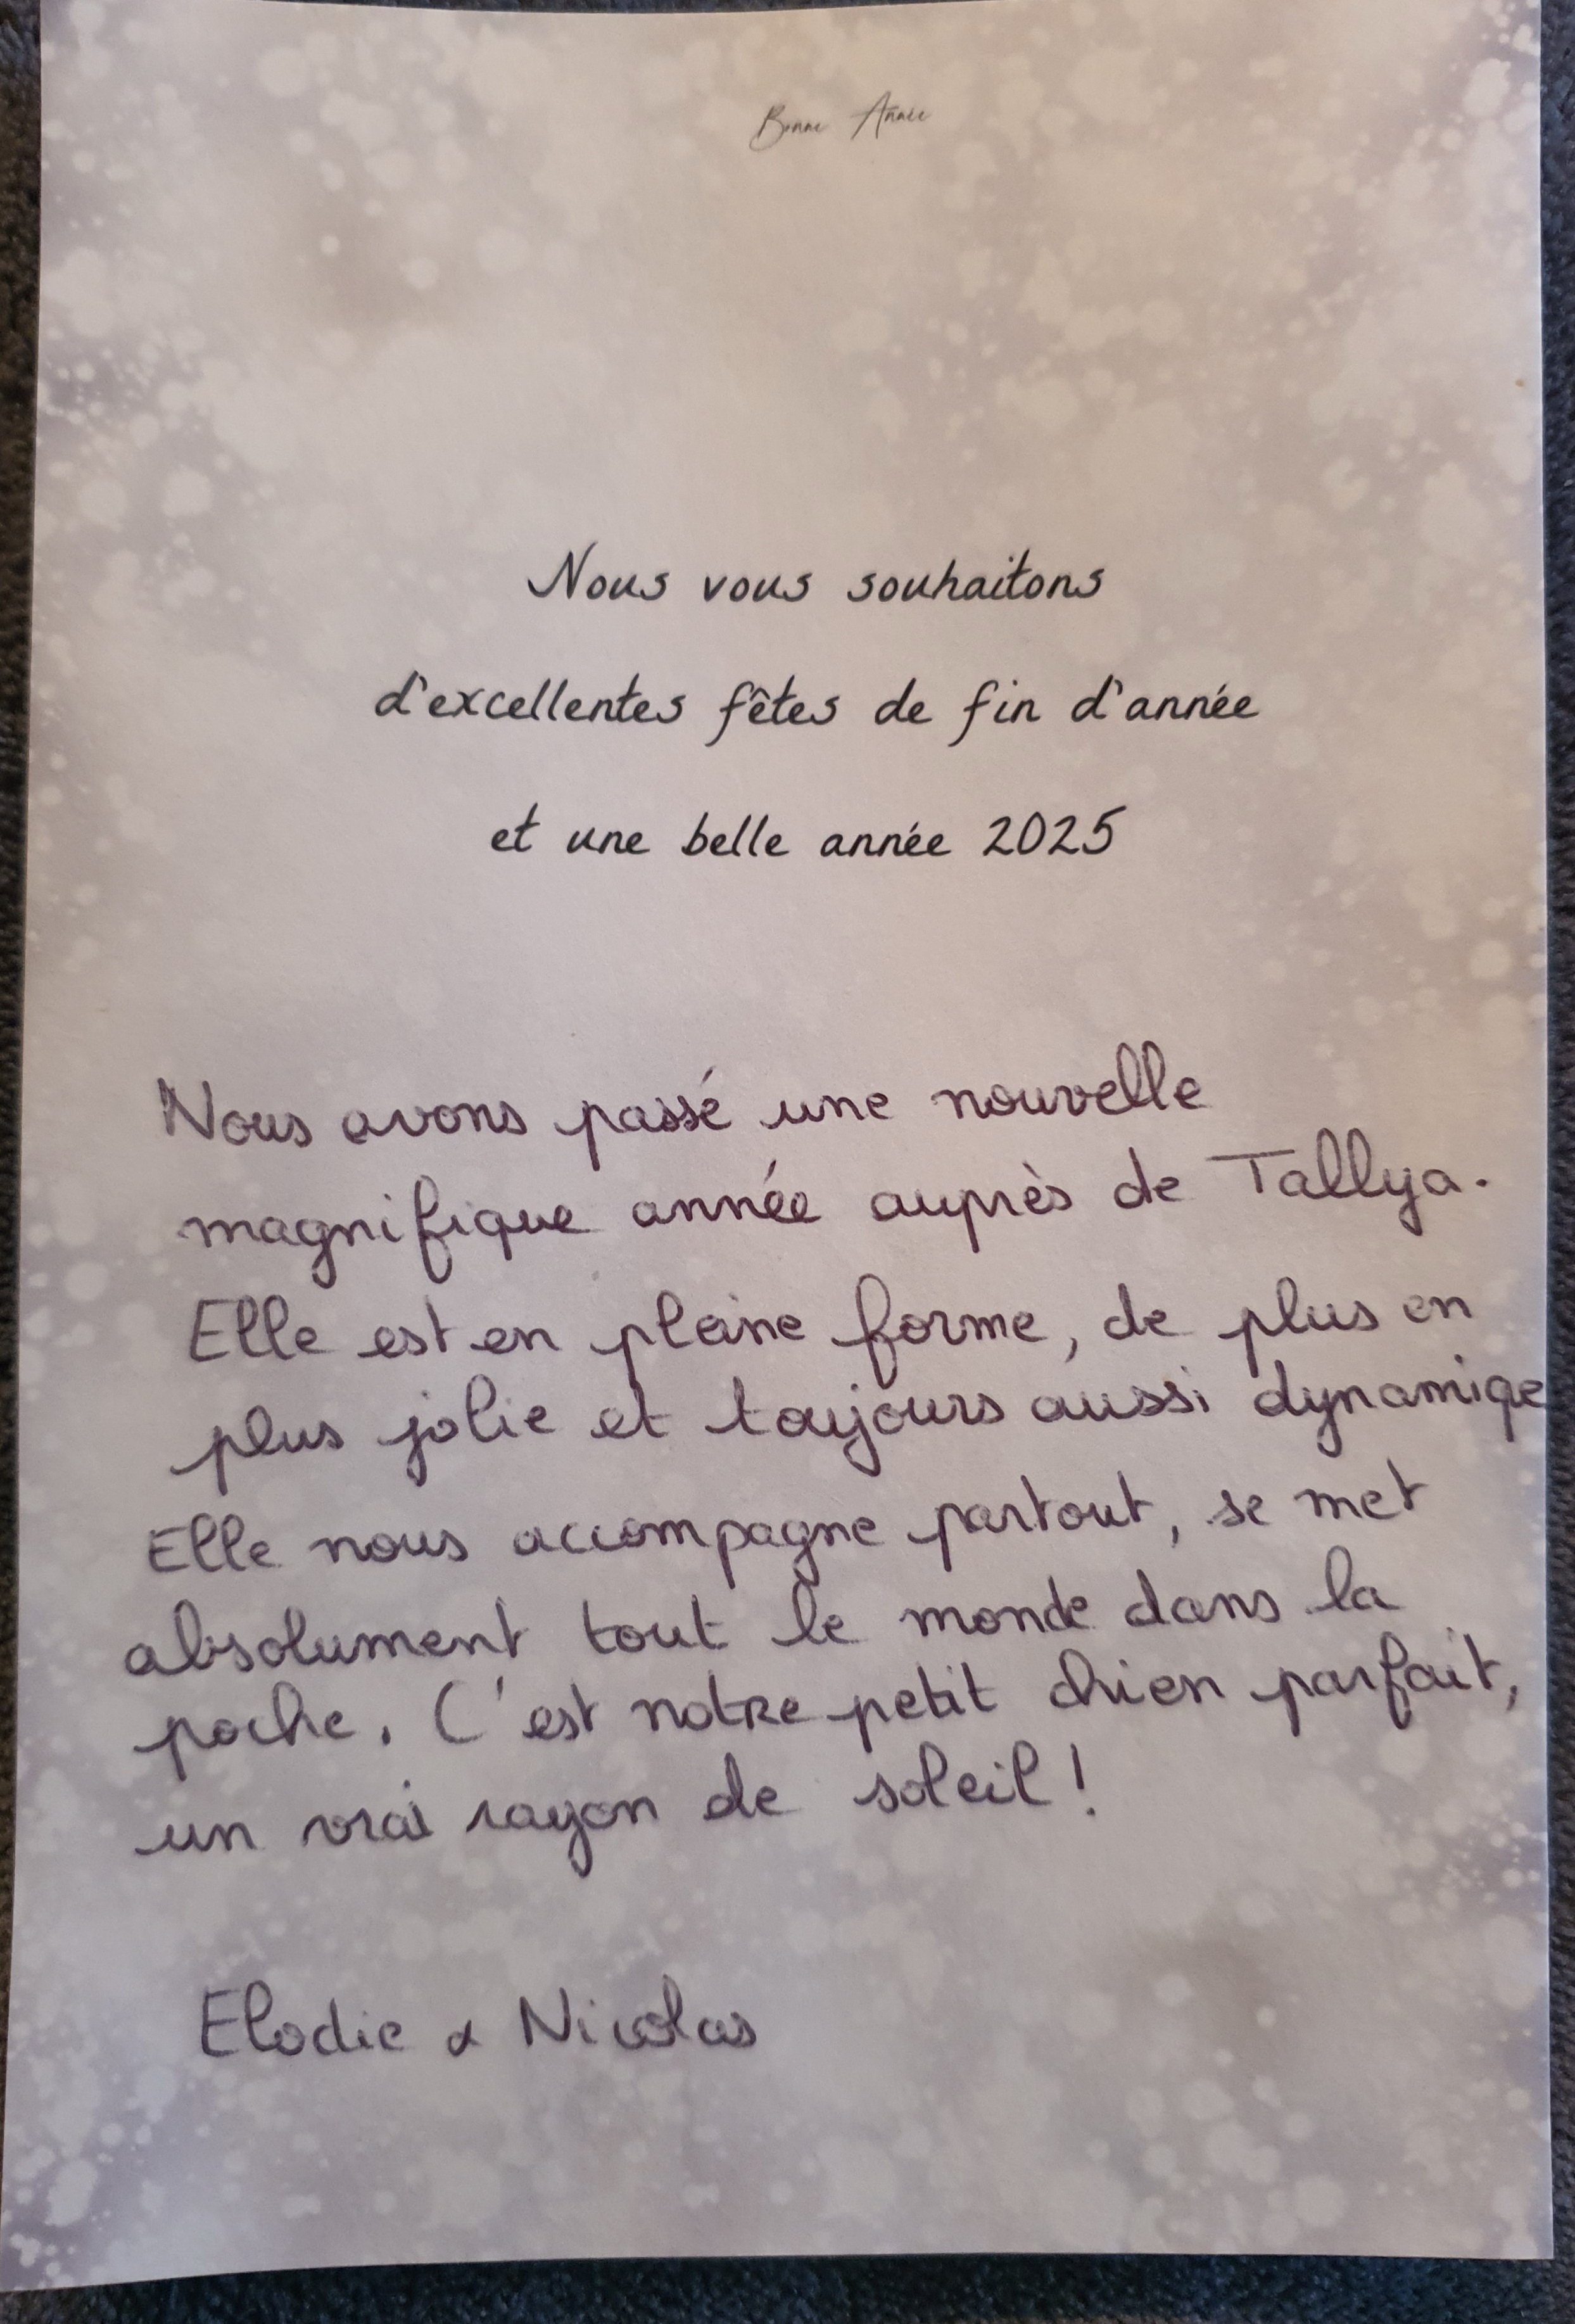 Bonne Année
Nous vous souhaitons
d'excellentes fêtes de fin d'année
et une belle année 2025
Nous avons passé une nouvelle
magnifique année auprès de Tallya.
Elle est en pleine forme, de plus en
plus jolie et toujours aussi dynamique
Elle nous accompagne partout, se met
absolument tout le monde dans la
poche. C'est notre petit chien parfait,
un vrai rayon de soleil !
Elodie & Nicolas